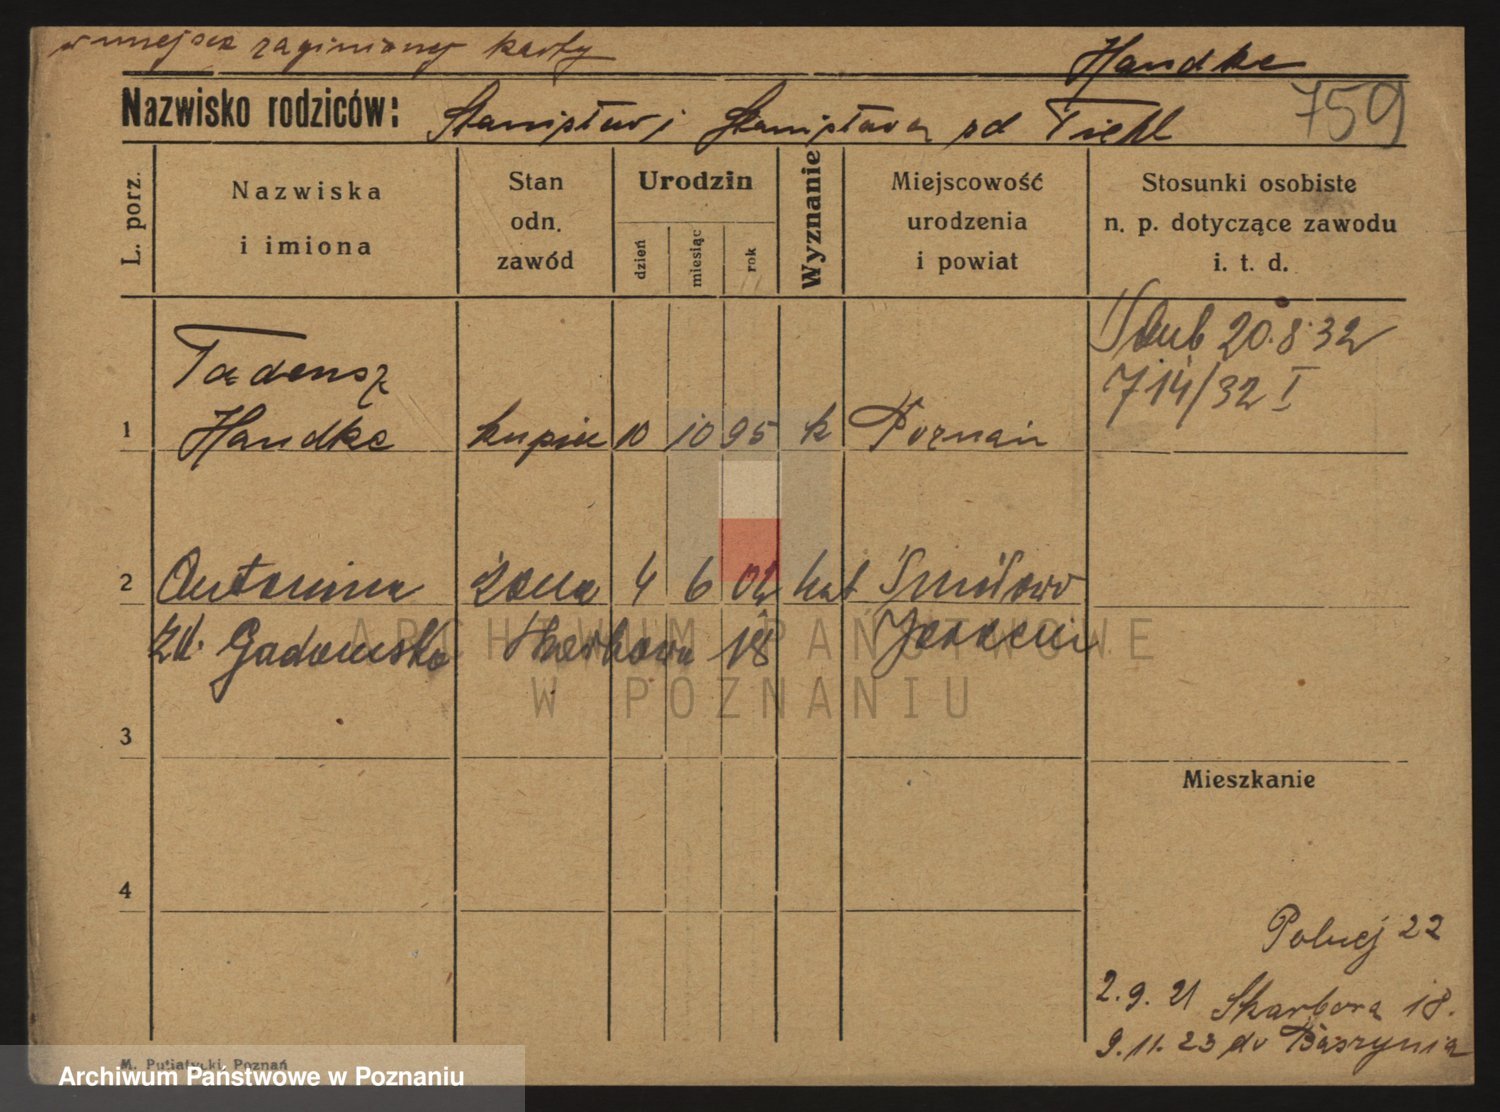 w miejsce zaginionej karty
Handke
759
Nazwisko rodziców: Stanisław i Stanisława od Tiehl
L. porz.
Nazwiska
i imiona
Stan
odn.
zawód
Urodzin
dzień
miesiąc
rok
Wyznanie
Miejscowość
urodzenia
i powiat
Stosunki osobiste
n. p. dotyczące zawodu
i. t. d.
20.8.32
714/32 I
Tadeusz
1 Handke kupiec 10 10 95 k Poznań
2 Antonina żona 4 6 02 kat Śmiłowo
Gadomska Skarbowa 18
ARCHIWUM PAŃSTWOWE
W POZNANIU
3
Mieszkanie
4
Polnej 22
2.9.21 Skarbora 18.
9.11.23 do
M. Putiatycki, Poznań
Archiwum Państwowe w Poznaniu